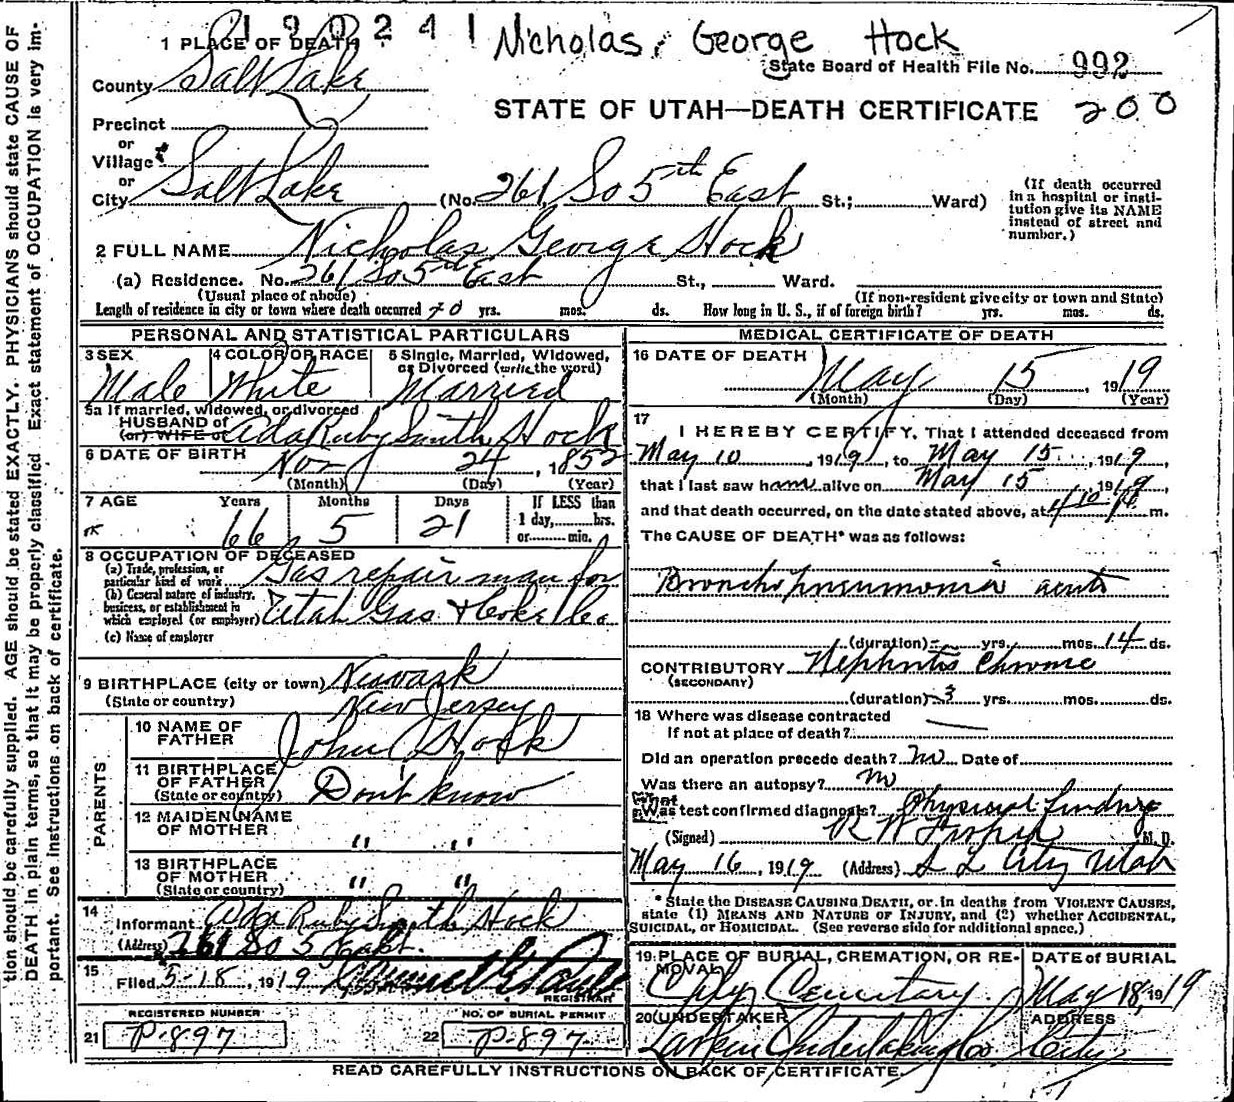 190241 Nicholas, George Hock
1 PLACE OF DEATH
State Board of Health File No. 992
County Salt Lake
STATE OF UTAH—DEATH CERTIFICATE 200
Precinct
or
Village
or
City Salt Lake (No. 261, So 5th East St.; Ward)
(If death occurred in a hospital or insti-
tution give its NAME
instead of street and
number.)
2 FULL NAME Nicholas George Hock
(a) Residence. No. 261 So 5th East St., Ward.
(Usual place of abode) (If non-resident give city or town and State)
Length of residence in city or town where death occurred 40 yrs. mos. ds. How long in U. S., if of foreign birth? yrs. mos. ds.
PERSONAL AND STATISTICAL PARTICULARS
3 SEX Male
4 COLOR OR RACE White
5 Single, Married, Widowed,
or Divorced (write the word)
Married
5a If married, widowed, or divorced
HUSBAND of
(or) WIFE of Ada Ruby Smith Hock
6 DATE OF BIRTH Nov 24, 1852
(Month) (Day) (Year)
7 AGE Years Months Days If LESS than
1 day, hrs.
or min.
66 5 21
8 OCCUPATION OF DECEASED
(a) Trade, profession, or
particular kind of work Gas repair man for
(b) General nature of industry,
business, or establishment in
which employed (or employer) Utah Gas & Coke Co
(c) Name of employer
9 BIRTHPLACE (city or town) Newark
(State or country) New Jersey
PARENTS
10 NAME OF
FATHER John Hock
11 BIRTHPLACE
OF FATHER
(State or country) Don't know
12 MAIDEN NAME
OF MOTHER " "
13 BIRTHPLACE
OF MOTHER
(State or country) " "
14
Informant Ada Ruby Smith Hock
(Address) 261 So 5 East.
15
Filed 5-18, 1919
REGISTRAR
REGISTERED NUMBER
21 P-897
NO. OF BURIAL PERMIT
22 P-897
MEDICAL CERTIFICATE OF DEATH
16 DATE OF DEATH May 15, 1919
(Month) (Day) (Year)
17
I HEREBY CERTIFY, That I attended deceased from
May 10, 1919, to May 15, 1919,
that I last saw him alive on May 15, 1919,
and that death occurred, on the date stated above, at 4 10 P m.
The CAUSE OF DEATH* was as follows:
Broncho pneumonia acute
(duration) yrs. mos. 14 ds.
CONTRIBUTORY Nephritis Chronic
(SECONDARY)
(duration) 3 yrs. mos. ds.
18 Where was disease contracted
If not at place of death?
Did an operation precede death? no Date of
Was there an autopsy? no
What test confirmed diagnosis? Physical findings
(Signed) M. D.
May 16, 1919 (Address) S L City Utah
* State the DISEASE CAUSING DEATH, or in deaths from VIOLENT CAUSES,
state (1) MEANS AND NATURE OF INJURY, and (2) whether ACCIDENTAL,
SUICIDAL, or HOMICIDAL. (See reverse side for additional space.)
19 PLACE OF BURIAL, CREMATION, OR RE-
MOVAL
City Cemetary
DATE of BURIAL
May 18, 1919
20 UNDERTAKER
Larkin Undertaking Co
ADDRESS
City
READ CAREFULLY INSTRUCTIONS ON BACK OF CERTIFICATE.
tion should be carefully supplied. AGE should be stated EXACTLY. PHYSICIANS should state CAUSE OF
DEATH in plain terms, so that it may be properly classified. Exact statement of OCCUPATION is very im-
portant. See instructions on back of certificate.